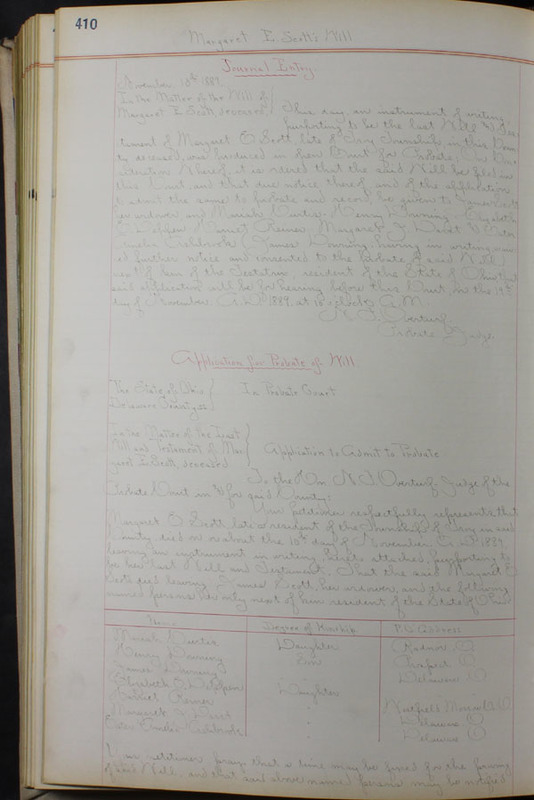 410
Margaret E. Scott's Will
Journal Entry.
November 13th 1889.
In the Matter of the Will of
Margaret E. Scott, deceased
This day, an instrument of writing,
purporting to be the last Will & Tes-
tament of Margaret E. Scott, late of Troy Township, in this Coun-
ty, deceased, was produced in open Court for Probate; On Con-
sideration Whereof it is ordered that the said Will be filed in
this Court, and that due notice thereof, and of the application
to admit the same to probate and record, be given to James Scott
her widower, and Mariah Henry Downing
Harriet Margaret J.
James Downing having in writing waiv-
ed further notice and consented to the probate of said Will
next of kin of the Testatrix, resident of the State of Ohio, that
said application will be for hearing before this Court, on the 19th
day of November A.D. 1889, at 10 o'clock, A.M.
Probate Judge,
Application for Probate of Will
The State of Ohio
Delaware County, ss
In Probate Court
In the Matter of the Last
Will and Testament of Mar-
garet E. Scott, deceased
Application to Admit to Probate
To the Hon. Judge of the
Probate Court in & for said County:
Your petitioner respectfully represents that
Margaret E. Scott, late a resident of the Township of Troy in said
County, died on or about the 10th day of November A.D. 1889
leaving an instrument in writing, hereto attached, purporting to
be her last Will and Testament; That the said Margaret E.
Scott died leaving James Scott, her widower, and the following
named persons her only next of kin resident of the State of Ohio
Name Degree of Kinship P.O. Address
Mariah Daughter Radnor O
Henry Downing Son Prospect O
James Downing Delaware O
Elizabeth Daughter
Harriet
Margaret J. Delaware O
Delaware O
Your petitioner prays that a time may be fixed for the proving
of said Will, and that said above named persons may be notified